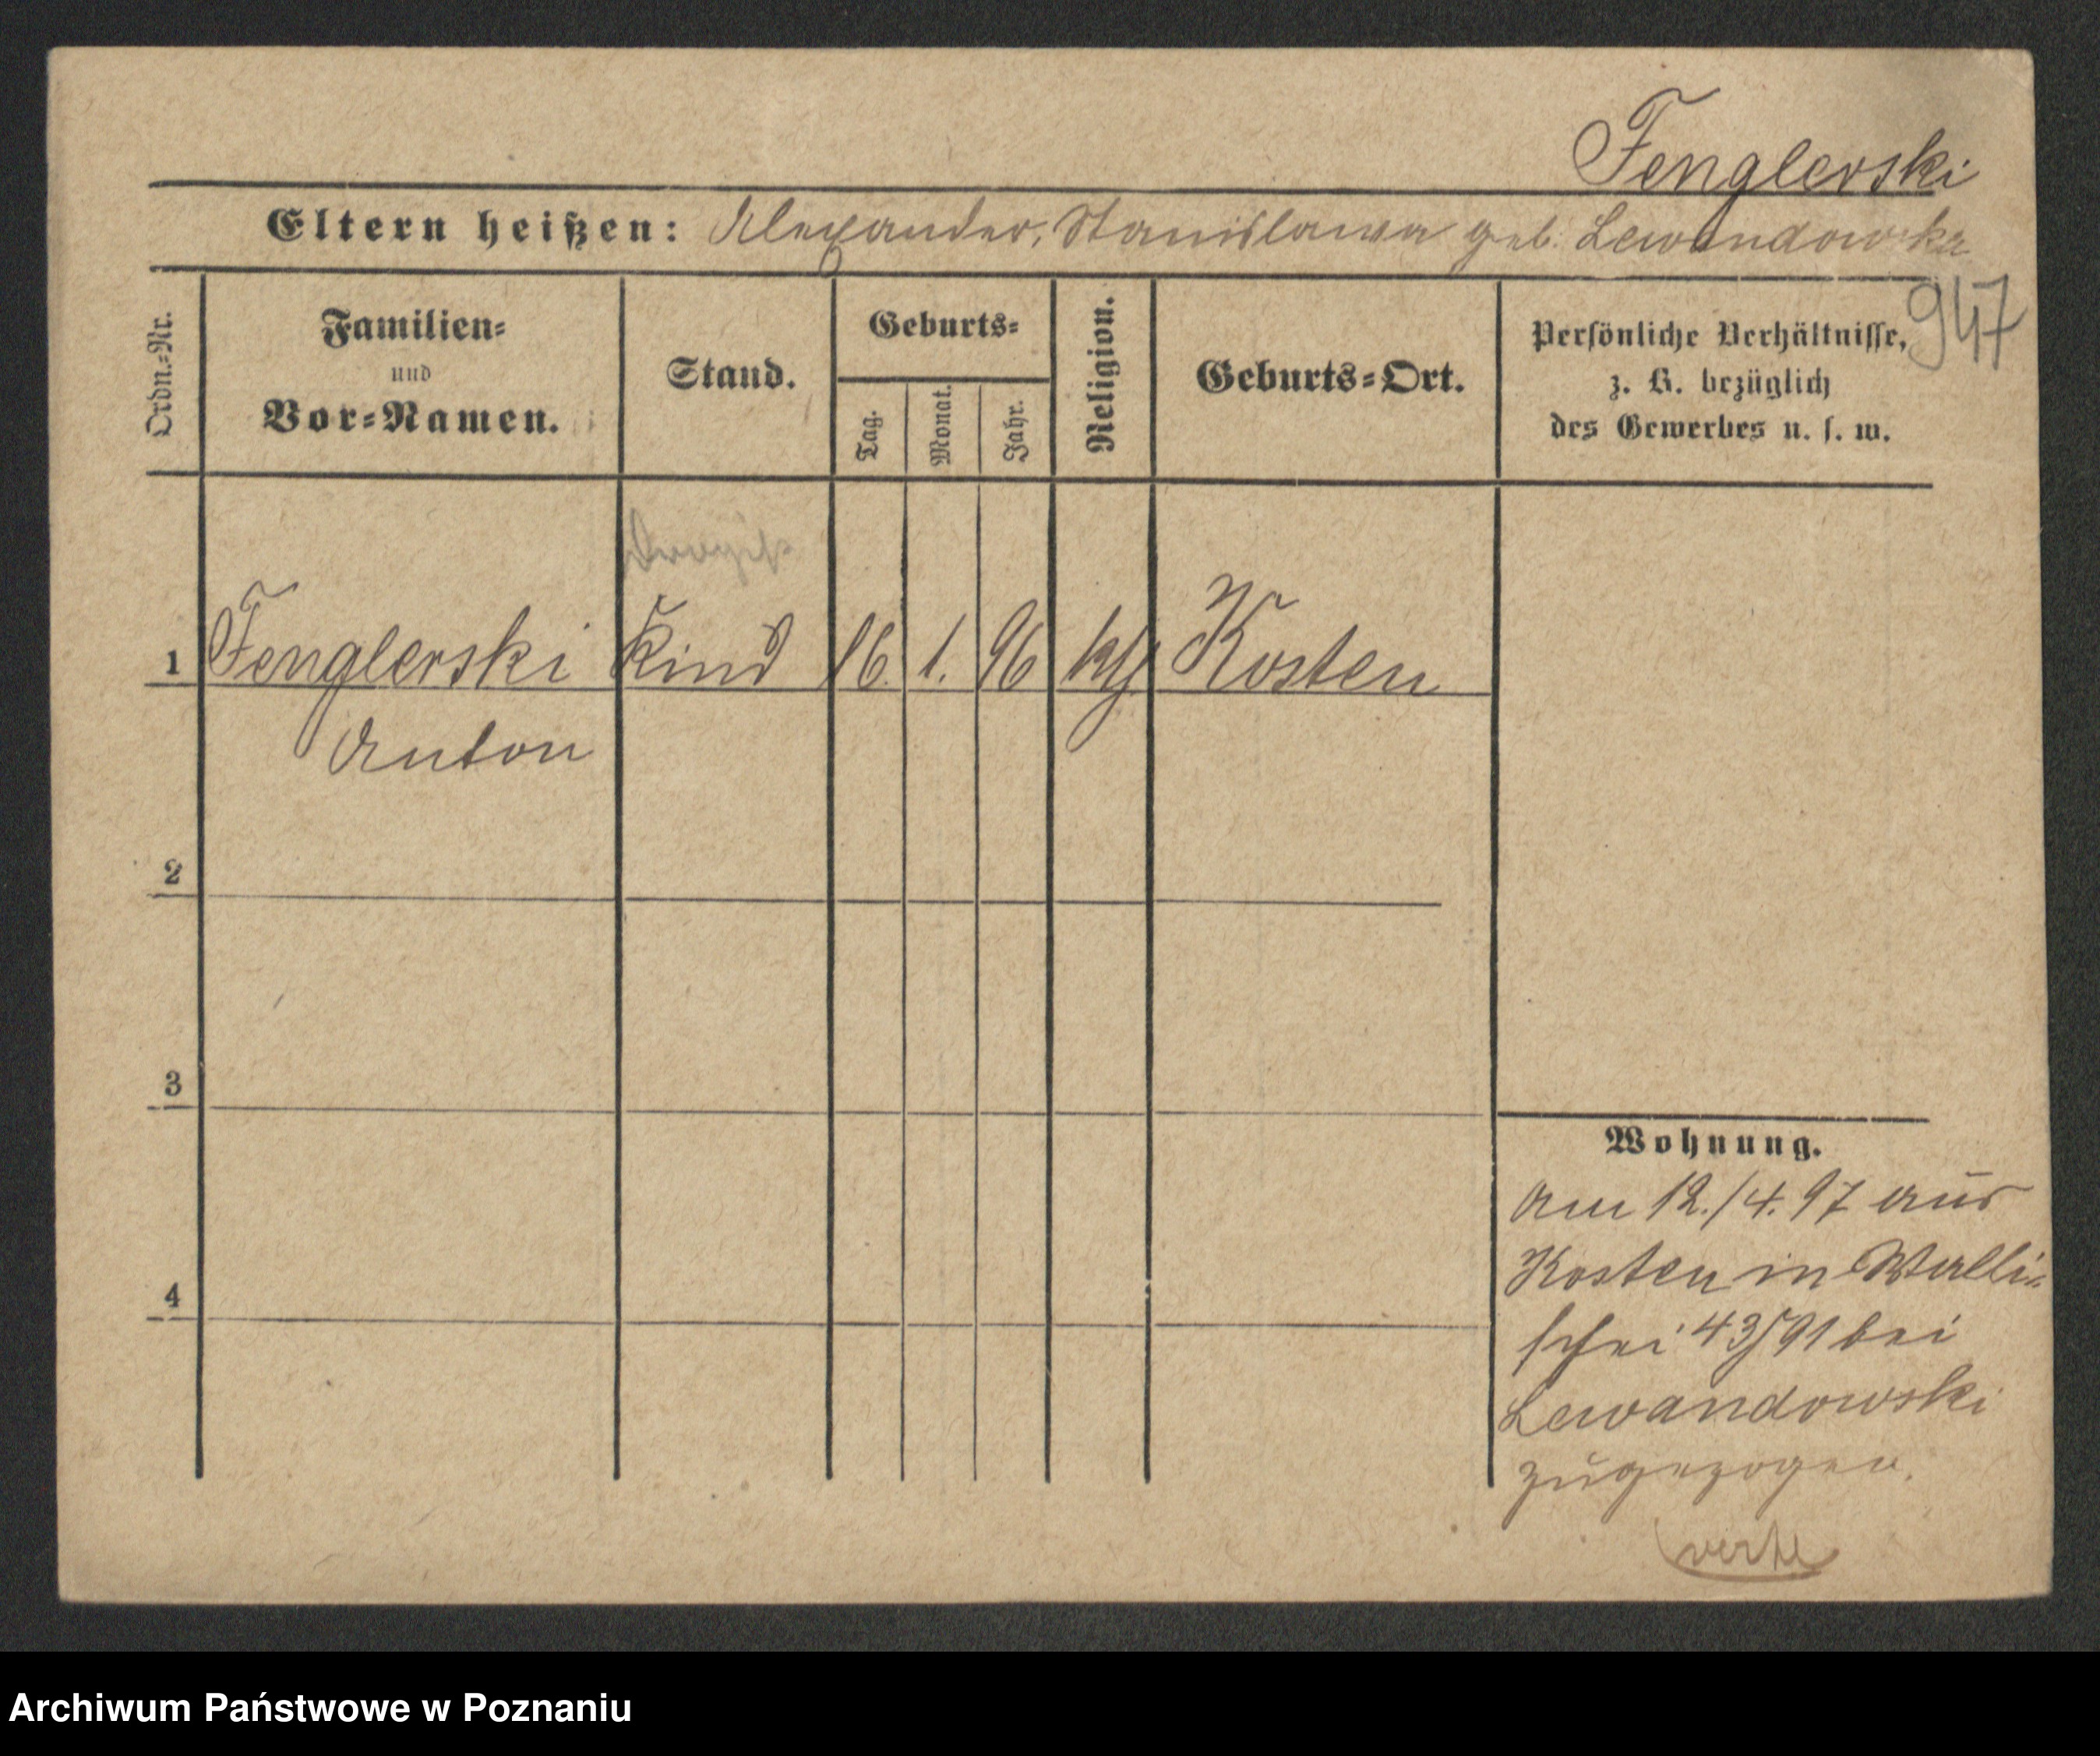 Fenglerski
Eltern heißen: Alexander, Stanislawa geb. Lewandowska
947
Ordn.-Nr.
Familien-
und
Vor-Namen.
Stand.
Geburts-
Tag.
Monat.
Jahr.
Religion.
Geburts-Ort.
Persönliche Verhältnisse,
z. B. bezüglich
des Gewerbes u. s. w.
Drogist
1 Fenglerski Kind 16. 1. 96 kth Kosten
Anton
2
3
4
Wohnung.
am 12./4. 97 aus
Kosten in Walli-
schei 43/91 bei
Lewandowski
zugezogen.
verte
Archiwum Państwowe w Poznaniu